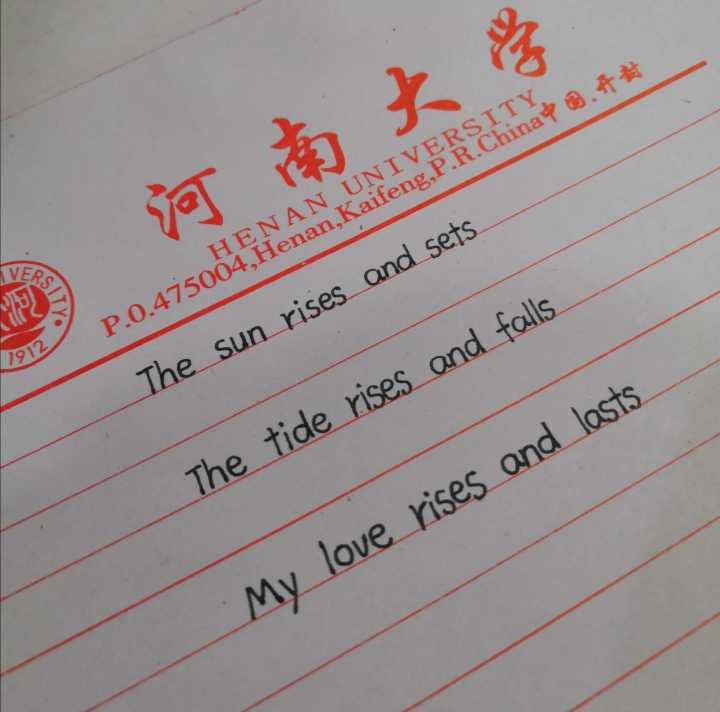 河南大学
HENAN UNIVERSITY
P.O.475004,Henan,Kaifeng,P.R.China中国.开封
VERSITY·
1912
The sun rises and sets
The tide rises and falls
My love rises and lasts